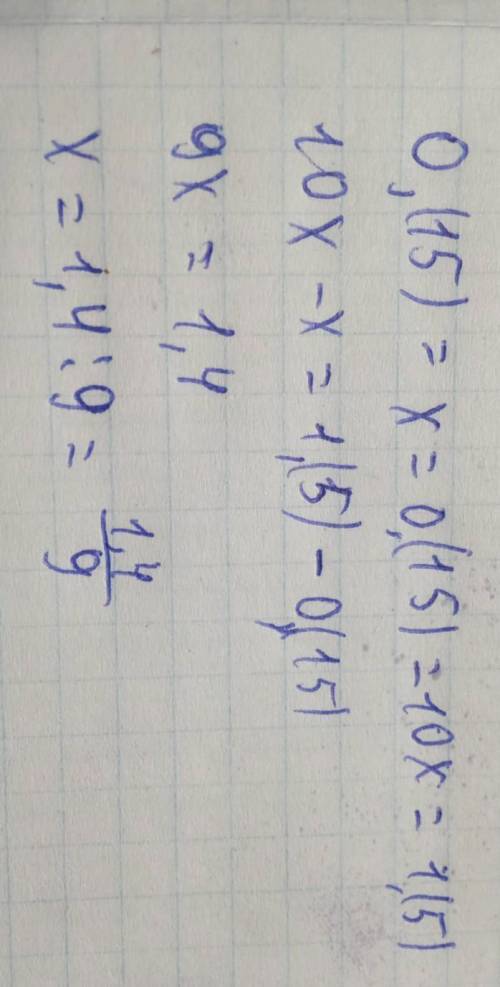 0,(15) = x = 0,(15) = 10x = 1,(5)
10x - x = 1,(5) - 0,(15)
9x = 1,4
x = 1,4 : 9 = 1,4/9